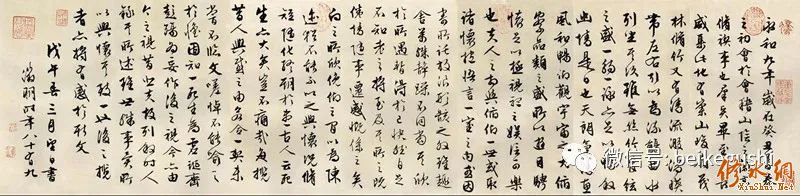 永和九年歲在癸丑暮春
之初會於會稽山陰之
脩禊事也群賢畢至少長
咸集此地有崇山峻領茂
林脩竹又有清流激湍暎
帶左右引以為流觴曲水
列坐其次雖無絲竹管弦
之盛一觴一詠亦足以暢敘
幽情是日也天朗氣清惠
風和暢仰觀宇宙之大俯
察品類之盛所以遊目騁
懷足以極視聽之娛信可樂
也夫人之相與俯仰一世或取
諸懷抱悟言一室之內或因
寄所託放浪形骸之外雖趣
舍萬殊靜躁不同當其欣
於所遇暫得於己快然自足
不知老之將至及其所之既
倦情隨事遷感慨係之矣
向之所欣俛仰之間以為陳
迹猶不能不以之興懷況脩
短隨化終期於盡古人云死
生亦大矣豈不痛哉每攬
昔人興感之由若合一契未
嘗不臨文嗟悼不能喻之
於懷固知一死生為虛誕齊
彭殤為妄作後之視今亦由
今之視昔悲夫故列敘時人
錄其所述雖世殊事異所
以興懷其致一也後之覽
者亦將有感於斯文
戊午春三月望日書
徵明時年八十有九
微信号: beikequshi
修水网
XiuShui.Net